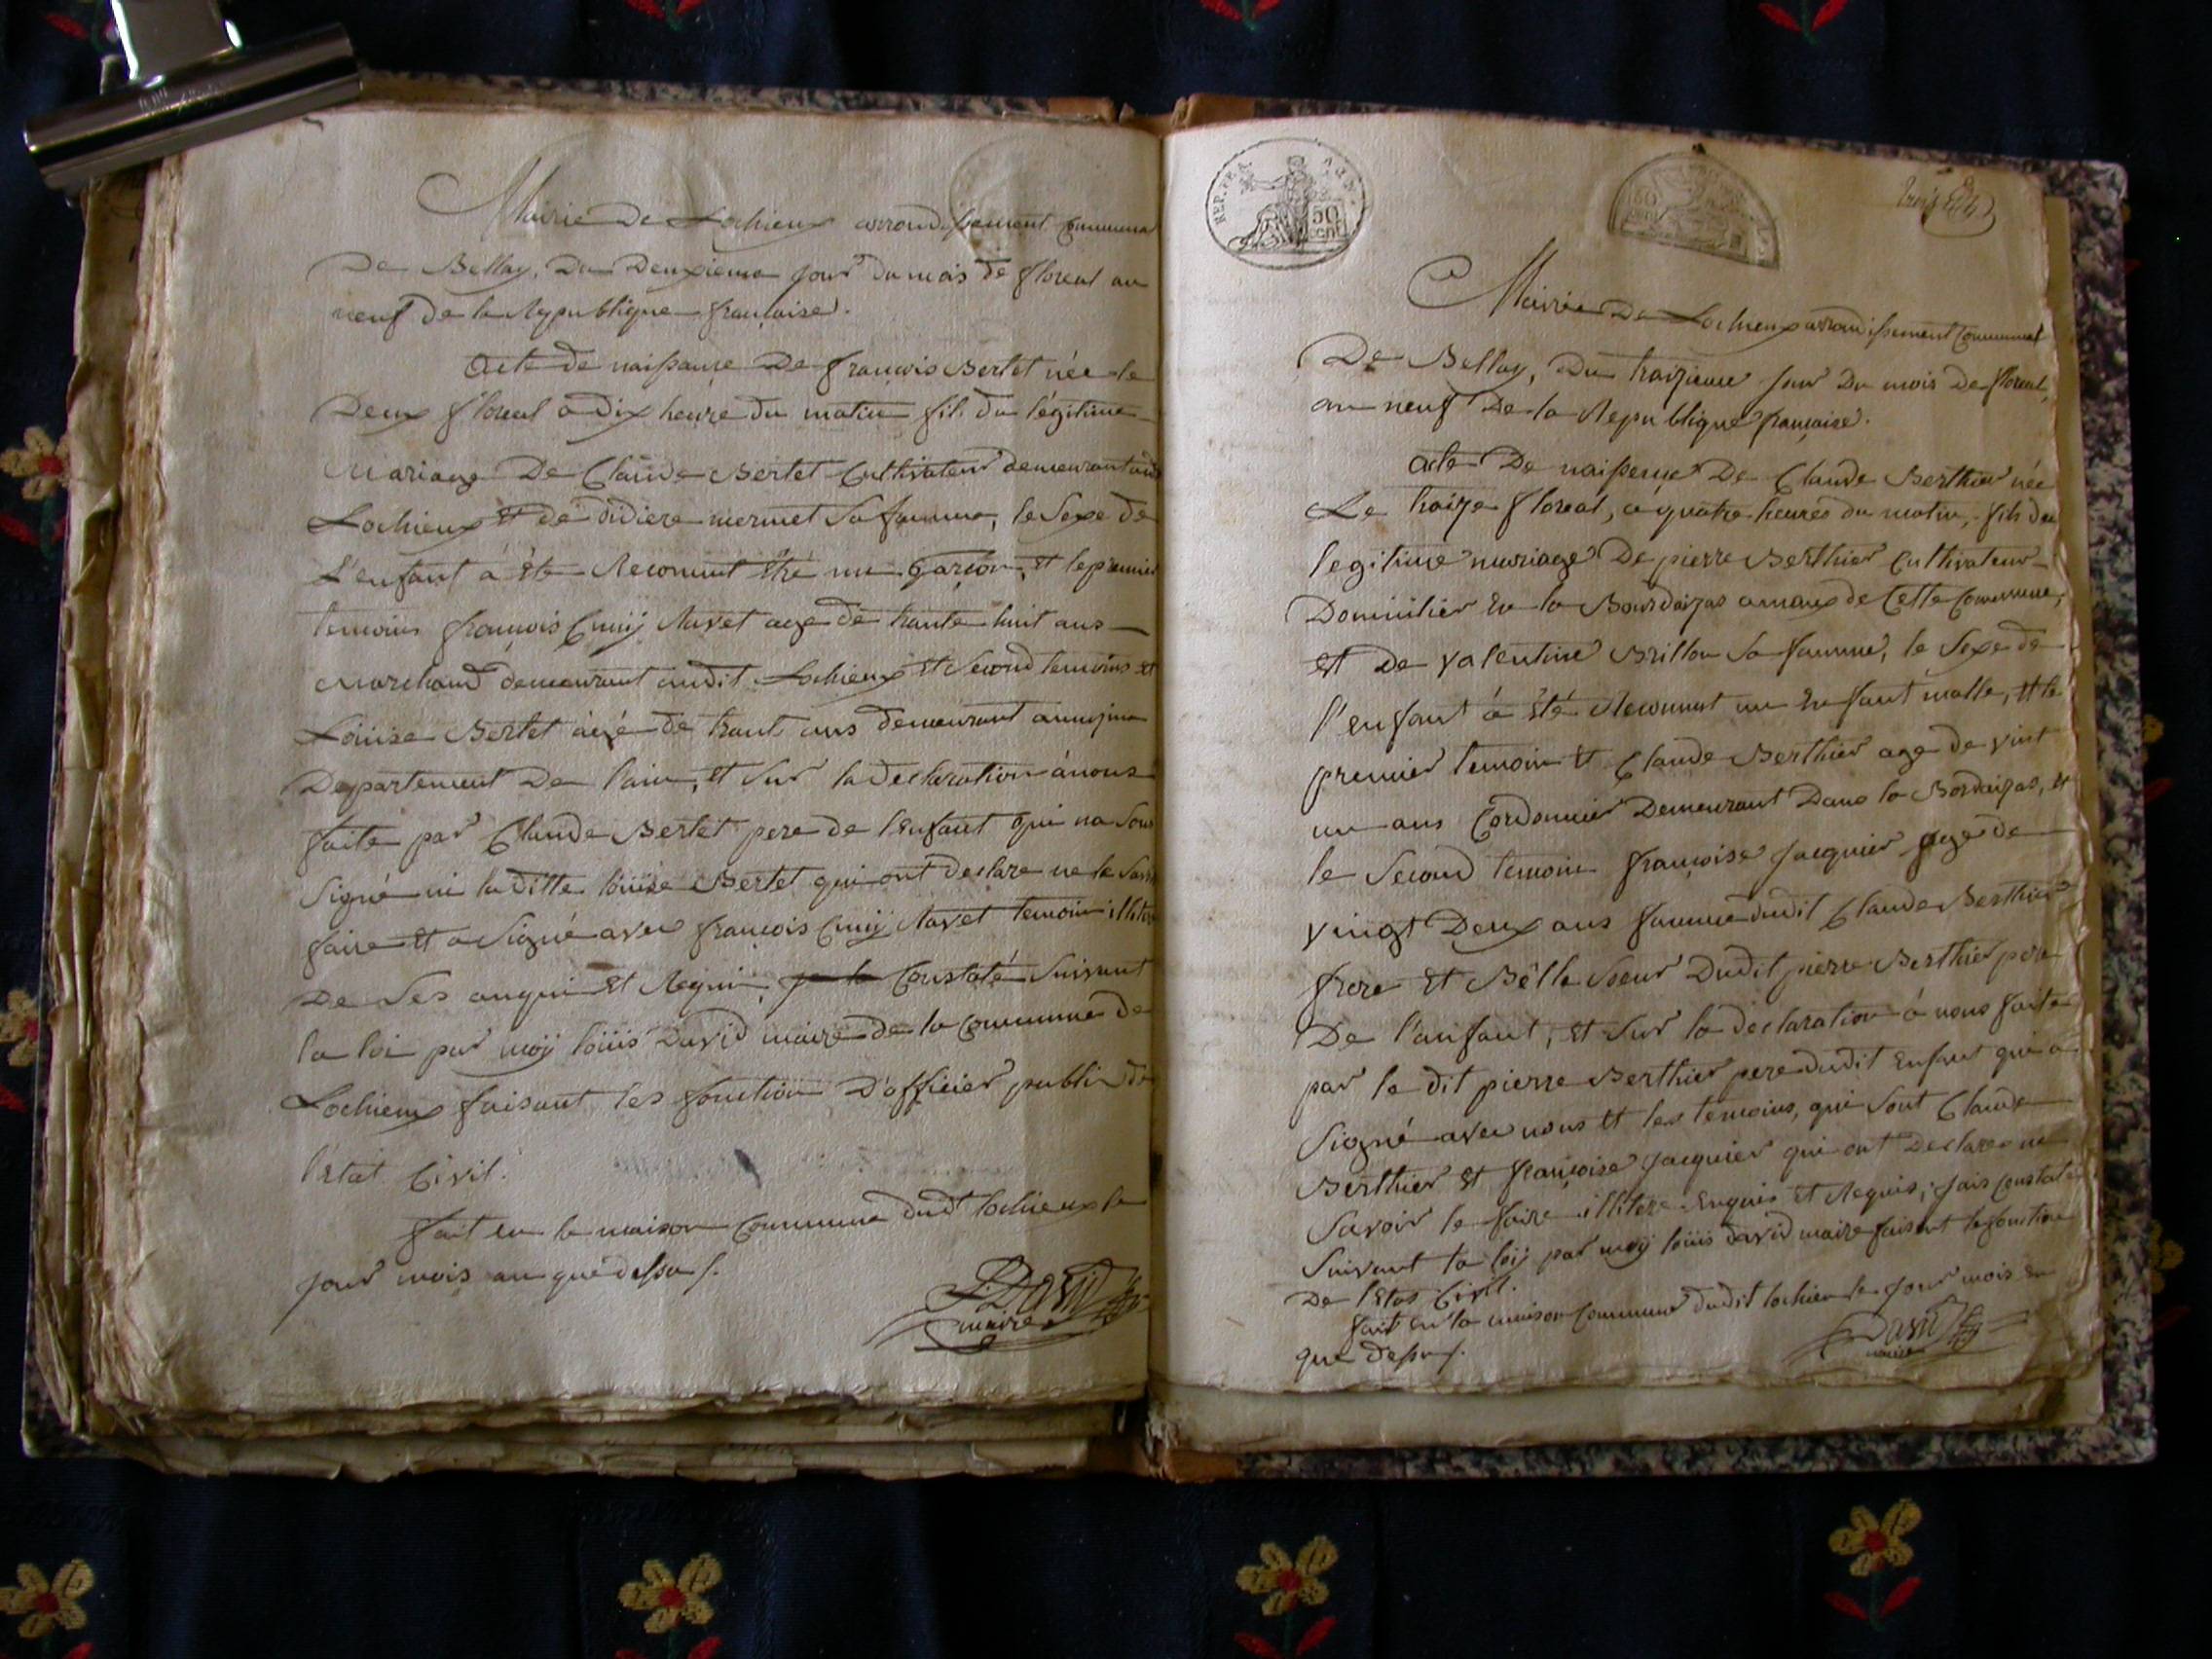 Mairie De Lochieux arrondissement Communal
De Belley, Du Deuxieme jour du mois de floreal an
neuf de la Republique francaise.
Acte de naissance De françois Bertet née le
Deux floreal a dix heure du matin fils du légitime
Mariage De Claude Bertet Cultivateur demeurant aud
Lochieux et de didiere mermet Sa famme, le Sexe de
L'enfant a été Reconnut être un garcon, et le premier
temoins françois Cunij Ravet age de trante huit ans
Marchand demeurant audit Lochieux et Second temoins et
Loüise Bertet àgé de trant ans demeurant
Departement De l'ain, et Sur la declaration ánous
faite par Claude Bertet pere de l'enfant qui na Sous
Signé ni laditte loüise Bertet qui ont declare ne le Savoir
faire et a Signé avec françois Cunij Ravet temoin illitere
De Ses anquis et Requis, Constaté Suivant
la loi par moÿ loüis David maire de la Commune de
Lochieux faisant les fonction D'officier public de
l'etat Civil.
fait en la maison Commune dudt lochieux le
jour mois an que dessus /.
David
maire
REP. FRA.
50
CEN.
50
Mairie De Lochieux arrondissement Communal
De Belley, Du traizieme jour Du mois De floreal,
an neuf De la Republique françaize.
acte De naissence De Claude Berthier née
Le traize floreal, a quatre heures du matin, fils du
legitime mariage De pierre Berthier Cultivateur
Domicilier En la Bourdaizas de Cette Commune,
et De valentine Brillon Sa famme, le Sexe de
l'enfant á été Reconnut un Enfant malle, et le
premier temoin et Claude Berthier age de vint
un ans Cordonnier Demeurant Dans la Bordaizas, et
le Second temoin françoise jacquier age de
vingt Deux ans famme dudit Claude Berthier
frere et Bêlle Soeur Dudit pierre Berthier pere
De l'anfant, et Sur la declaration á nous faite
par le dit pierre Berthier pere dudit Enfant qui a
Signé avec nous et les temoins, qui Sont Claude
Berthier et françoise jacquier qui ont Declare ne
Savoir le faire illitere Enquis et Requis, fais constaté
Suivant la loÿ par moÿ loüis David maire faisant le fonction
De l'Etas Civil.
fait en la maison Commune dudit lochieu le jour mois en
que dessus /.
David
maire